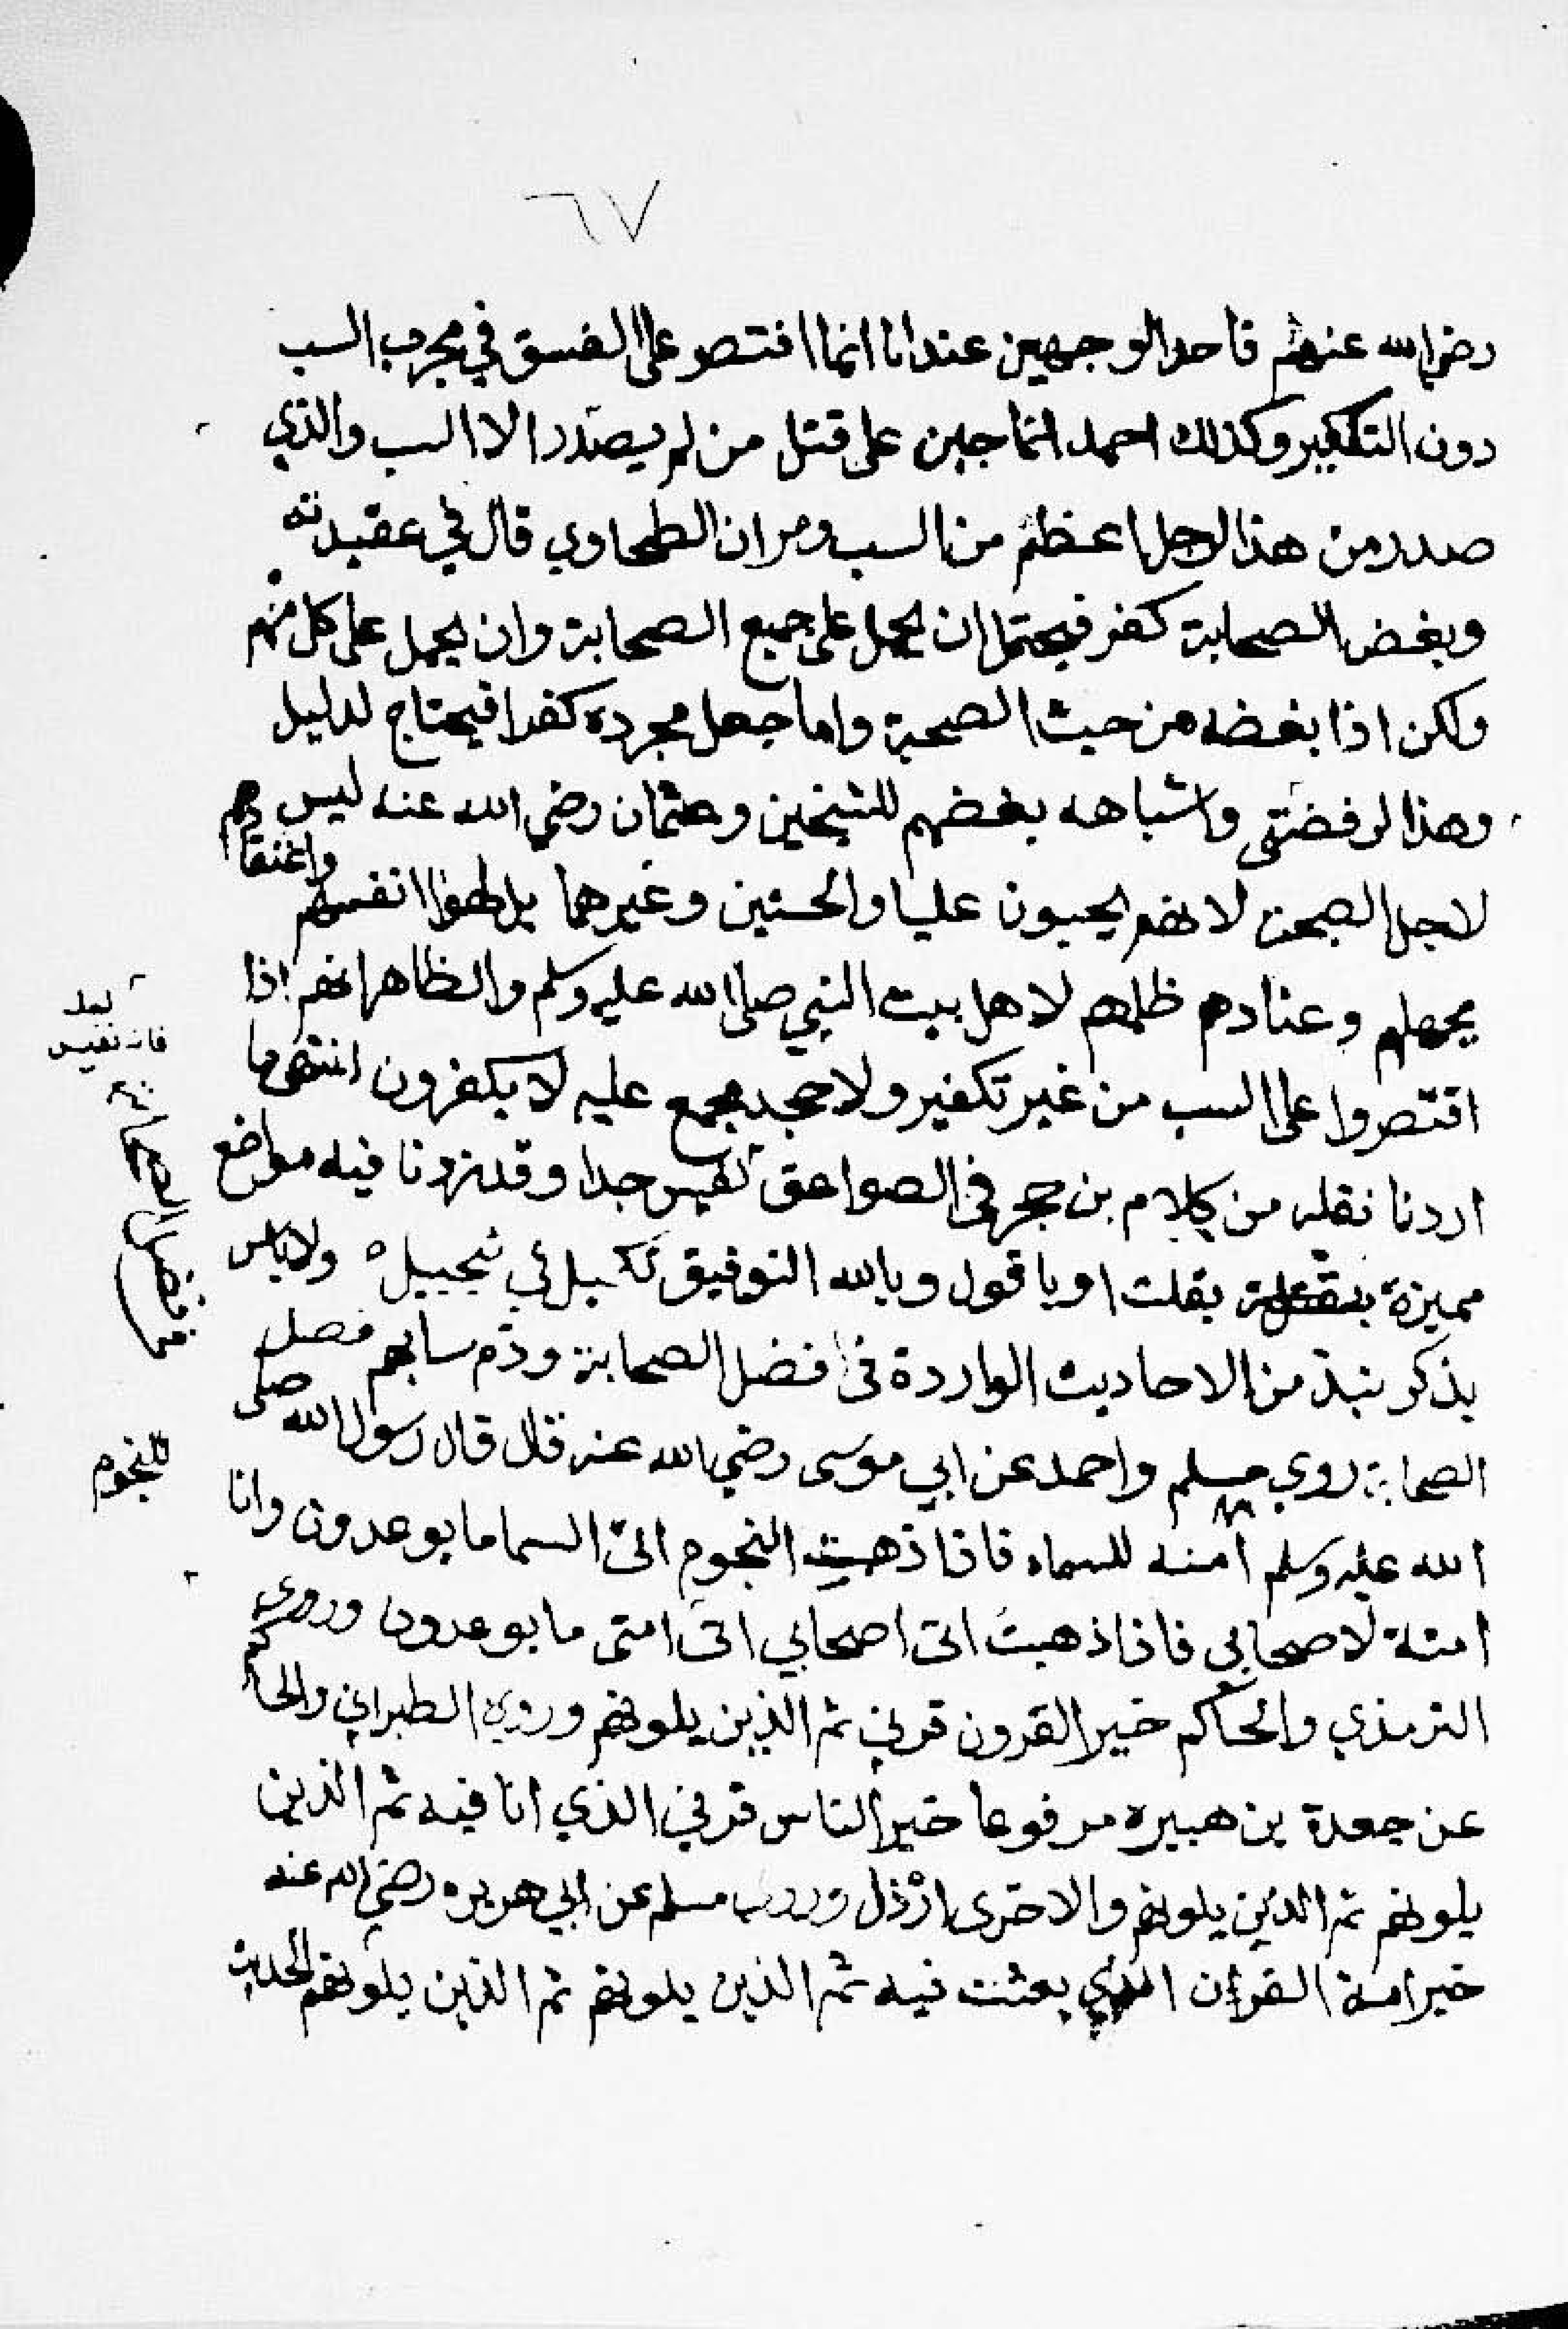 ٦٧
رضي الله عنهم فاحد الوجهين عندنا انما اقتصر على الفسق في مجرد السب
دون التكفير وكذلك احمد انما جبن على قتل من لم يصدر الا السب والذي
صدر من هذا الرجل اعظم من السب ومر ان الطحاوي قال في عقيدته
وبغض الصحابة كفر فيحتمل ان يحمل على جميع الصحابة وان يحمل على كل منهم
ولكن اذا بغضه من حيث الصحبة واما جعل مجرده كفرا فيحتاج لدليل
وهذا لرفضتى واشباهه بغضهم للشيخين وعثمان رضي الله عنه ليس وهم
لاجل الصحبة لانهم يحبون عليا والحسنين وغيرهما بل لهوا انفسهم واعتقا
بجهلهم وعنادهم ظلمهم لاهل بيت النبي صلى الله عليه وسلم والظاهر انهم اذا
اقتصروا على السب من غير تكفير ولا جحد مجمع عليه لا يكفرون انتهى ما
اردنا نقله من كلام بن حجر في الصواعق نفيس جدا وقد زدنا فيه مواضع
مميزة بقلت او باقول وبالله التوفيق ولاباس
بذكر نبذ من الاحاديث الواردة في فضل الصحابة وذم سابهم فصل
الصحابة روي مسلم واحمد عن ابي موسى رضي الله عنه قال قال رسول الله صلى
الله عليه وسلم امنه للسماء فاذا ذهبت النجوم اتى السما ما يوعدون وانا
امنة لاصحابي فاذا ذهبت اتى اصحابي اتى امتى ما يوعدون وروى
الترمذي والحاكم خير القرون قرني ثم الذين يلونهم وروى الطبراني والحاكم
عن جعدة بن هبيره مرفوعا خير الناس قرني الذي انا فيه ثم الذين
يلونهم ثم الذين يلونهم والاخرى ارذل وروى مسلم عن ابي هريره رضي الله عنه
خير امة القران الذي بعثت فيه ثم الذين يلونهم ثم الذين يلونهم الحديث
لعله
فانه نفيس
في فضل الصحابة
النجوم